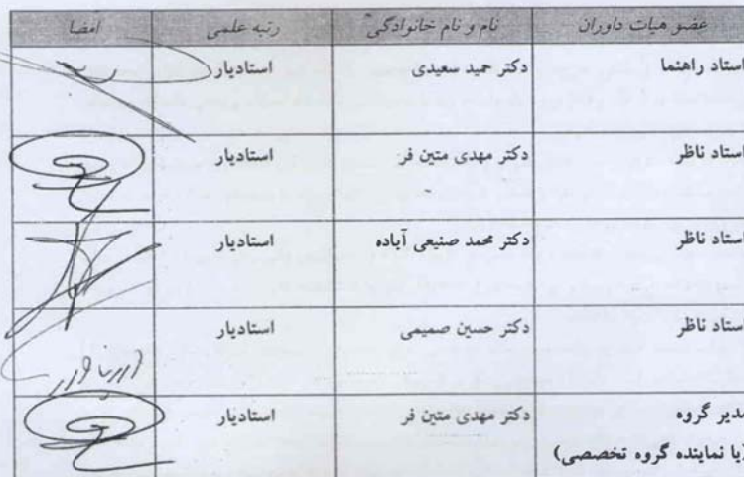 عضو هیات داوران نام و نام خانوادگی رتبه علمی امضا
استاد راهنما دکتر حمید سعیدی استادیار
استاد ناظر دکتر مهدی متین فر استادیار
استاد ناظر دکتر محمد صنیعی آباده استادیار
استاد ناظر دکتر حسین صمیمی استادیار
مدیر گروه دکتر مهدی متین فر استادیار
(یا نماینده گروه تخصصی)